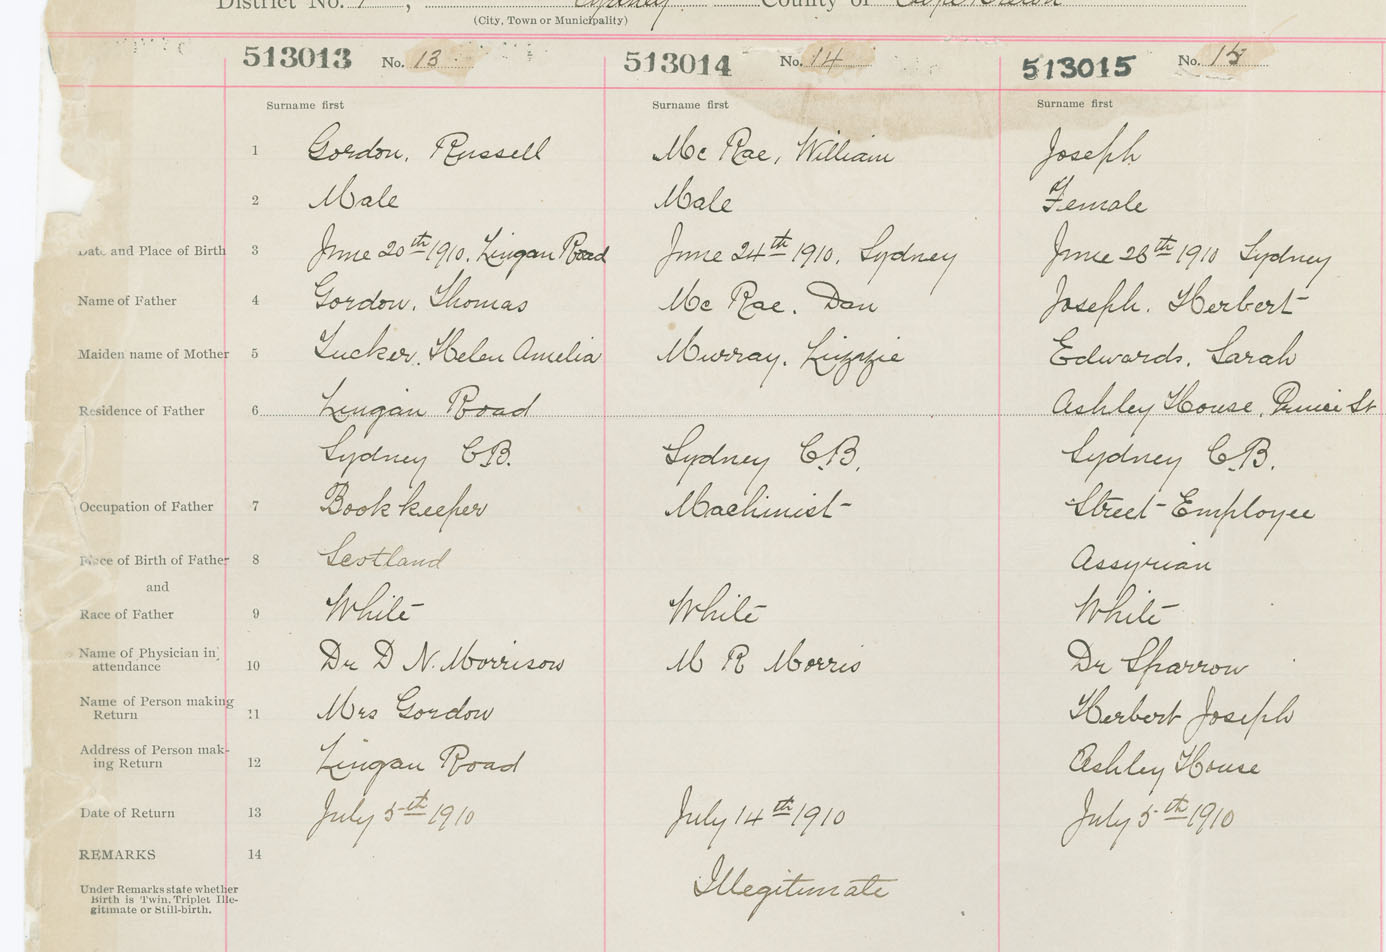 District No. Sydney County of Cape Breton
(City, Town or Municipality)
513013 No. 13 513014 No. 14 513015 No. 15
Surname first Surname first Surname first
1 Gordon, Russell Mc Rae, William Joseph
2 Male Male Female
Date and Place of Birth 3 June 20th 1910, Lingan Road June 24th 1910, Sydney June 28th 1910 Sydney
Name of Father 4 Gordon, Thomas Mc Rae. Dan Joseph. Herbert
Maiden name of Mother 5 Tucker, Helen Amelia Murray. Lizzie Edwards, Sarah
Residence of Father 6 Lingan Road Ashley House, St
Sydney C.B. Sydney C.B. Sydney C.B.
Occupation of Father 7 Book keeper Machinist Street-Employee
Place of Birth of Father 8 Scotland Assyrian
and
Race of Father 9 White White White
Name of Physician in
attendance 10 Dr D N. Morrison M R Morris Dr Sparrow
Name of Person making
Return 11 Mrs Gordon Herbert Joseph
Address of Person mak-
ing Return 12 Lingan Road Ashley House
Date of Return 13 July 5th 1910 July 14th 1910 July 5th 1910
REMARKS 14
Under Remarks state whether Illegitimate
Birth is Twin, Triplet Ille-
gitimate or Still-birth.